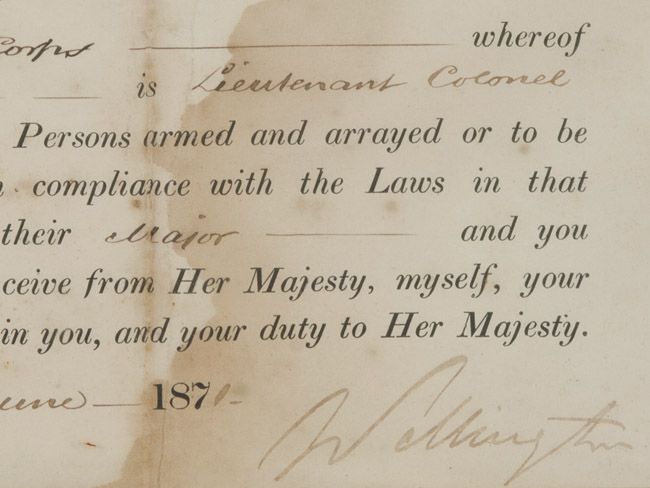 Corps whereof
is Lieutenant Colonel
Persons armed and arrayed or to be
compliance with the Laws in that
their Major and you
ceive from Her Majesty, myself, your
in you, and your duty to Her Majesty.
une 187
Wellington